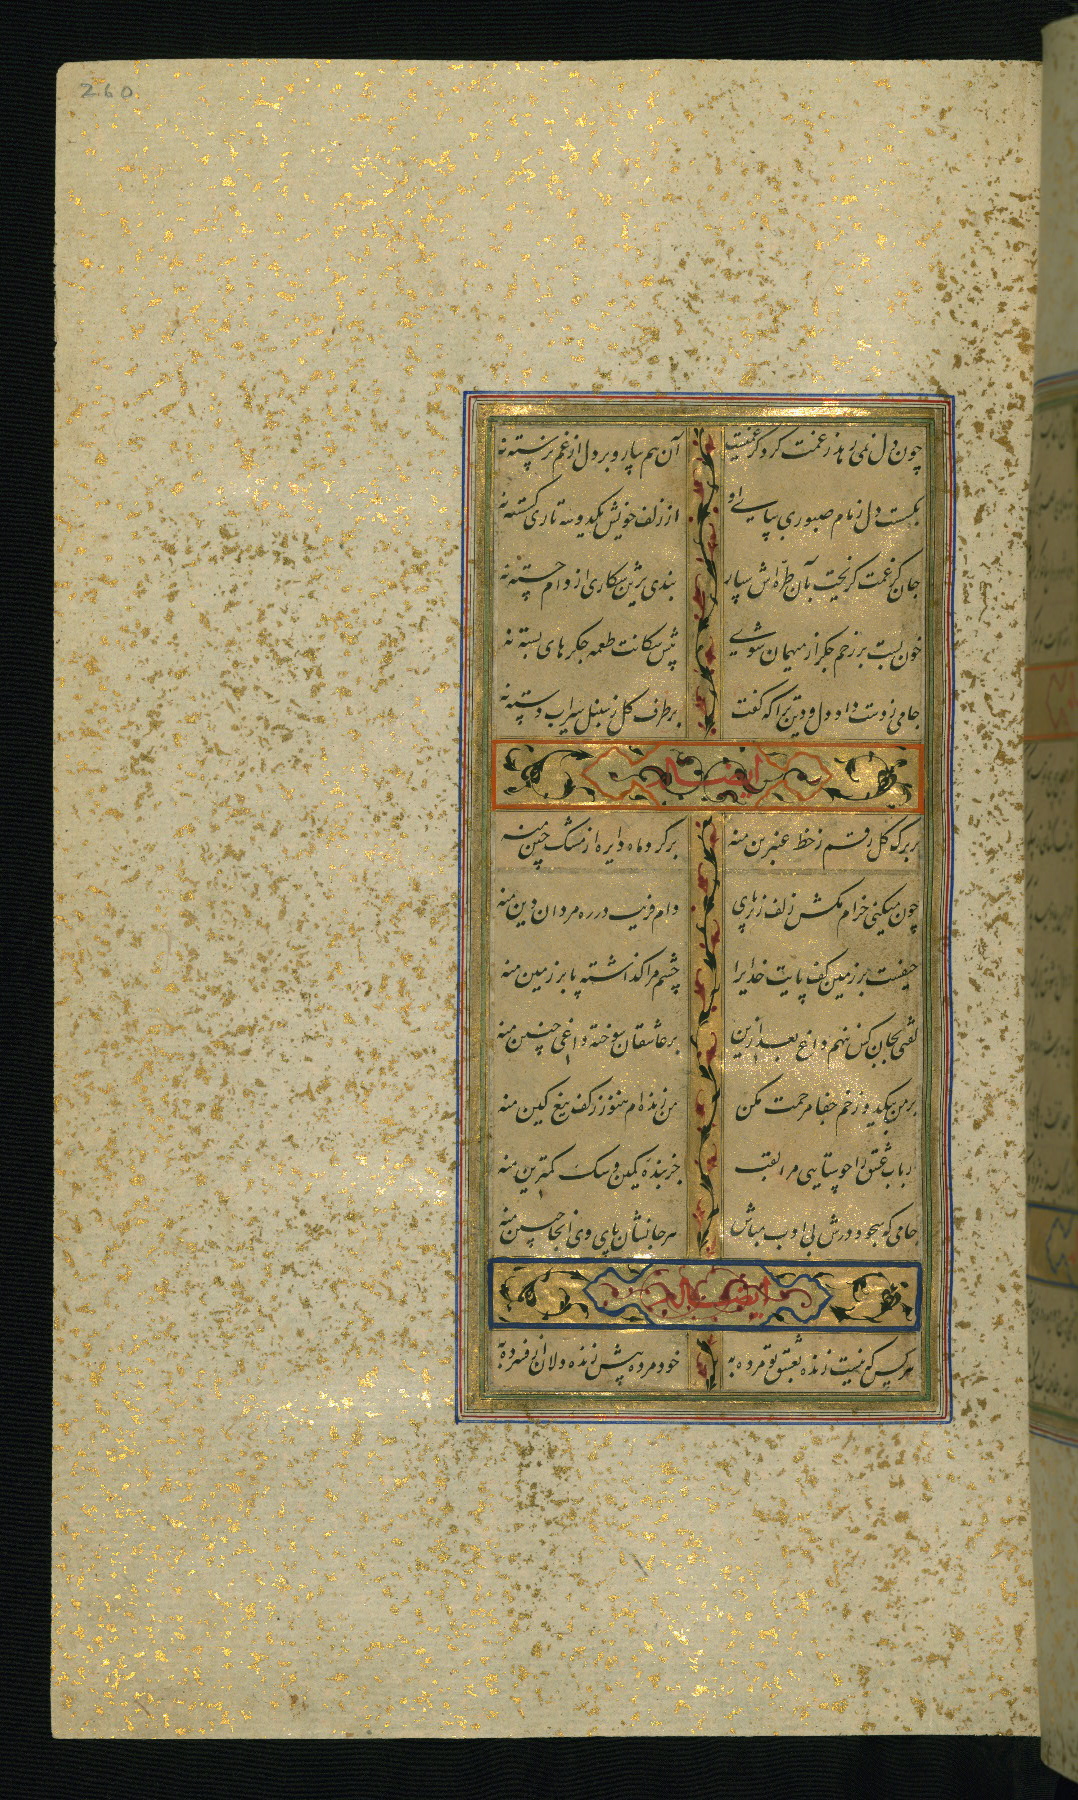 260
چون دل نمی رهد ز غمت کرد کر غمیت آن هم بیار و بر دل از غم نرسته نه
بکسست دل زمام صبوری بپای او از زلف خویش یکدو سه تاری کسسته نه
جان کز غمت کریخت بآن طره اش سپار بندی برین شکاری از دام جسته نه
خون بست بر زخم جکر از میهمان شوی پیش سکانت طعمه جکرهای بسته نه
جامی ز دست داد دل و دین ترا که گفت بر طرف کل ز سنبل سیراب دسته نه
ایضا له
بر برک کل رقم ز خط عنبرین منه بر کرد ماه دایره از مشک چین منه
چون میکنی خرام مکش زلف زیر پای دام فریب در ره مردان دین منه
حیفست بر زمین کف پایت خدایرا چشم مرا کذاشته پا بر زمین منه
گفتی بجان کس ننهم داغ بعد ازین بر عاشقان سوخته داغی چنین منه
بر من بیکدو زخم جفا مرحمت مکن من زنده ام هنوز ز کف تیغ کین منه
ارباب عشق را چو ستایی مرا لقب جز بنده کمین و سک کمترین منه
جامی که سجود درش بی ادب مباش هر جا نشان پای وی آنجا جبین منه
ایضا له
هر کس که نیست زنده بعشق تو مرده به خود مرده پیش زنده دلان از فسرده به